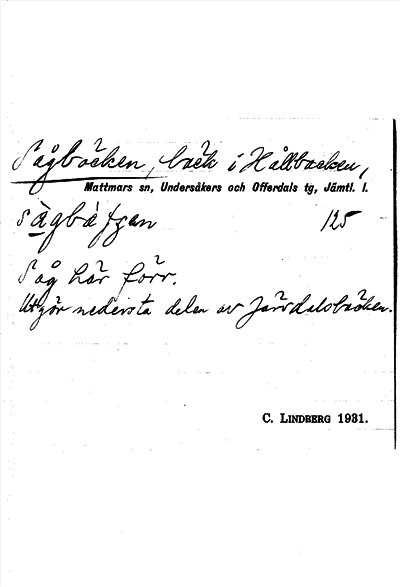 Sågbäcken, bäck i Hållbacken,
Mattmars sn, Undersåkers och Offerdals tg, Jämtl. l.
sàgbàʃʒan 125
Såg här förr.
Utgör nedersta delen av Järdalsbäcken.
C. LINDBERG 1931.